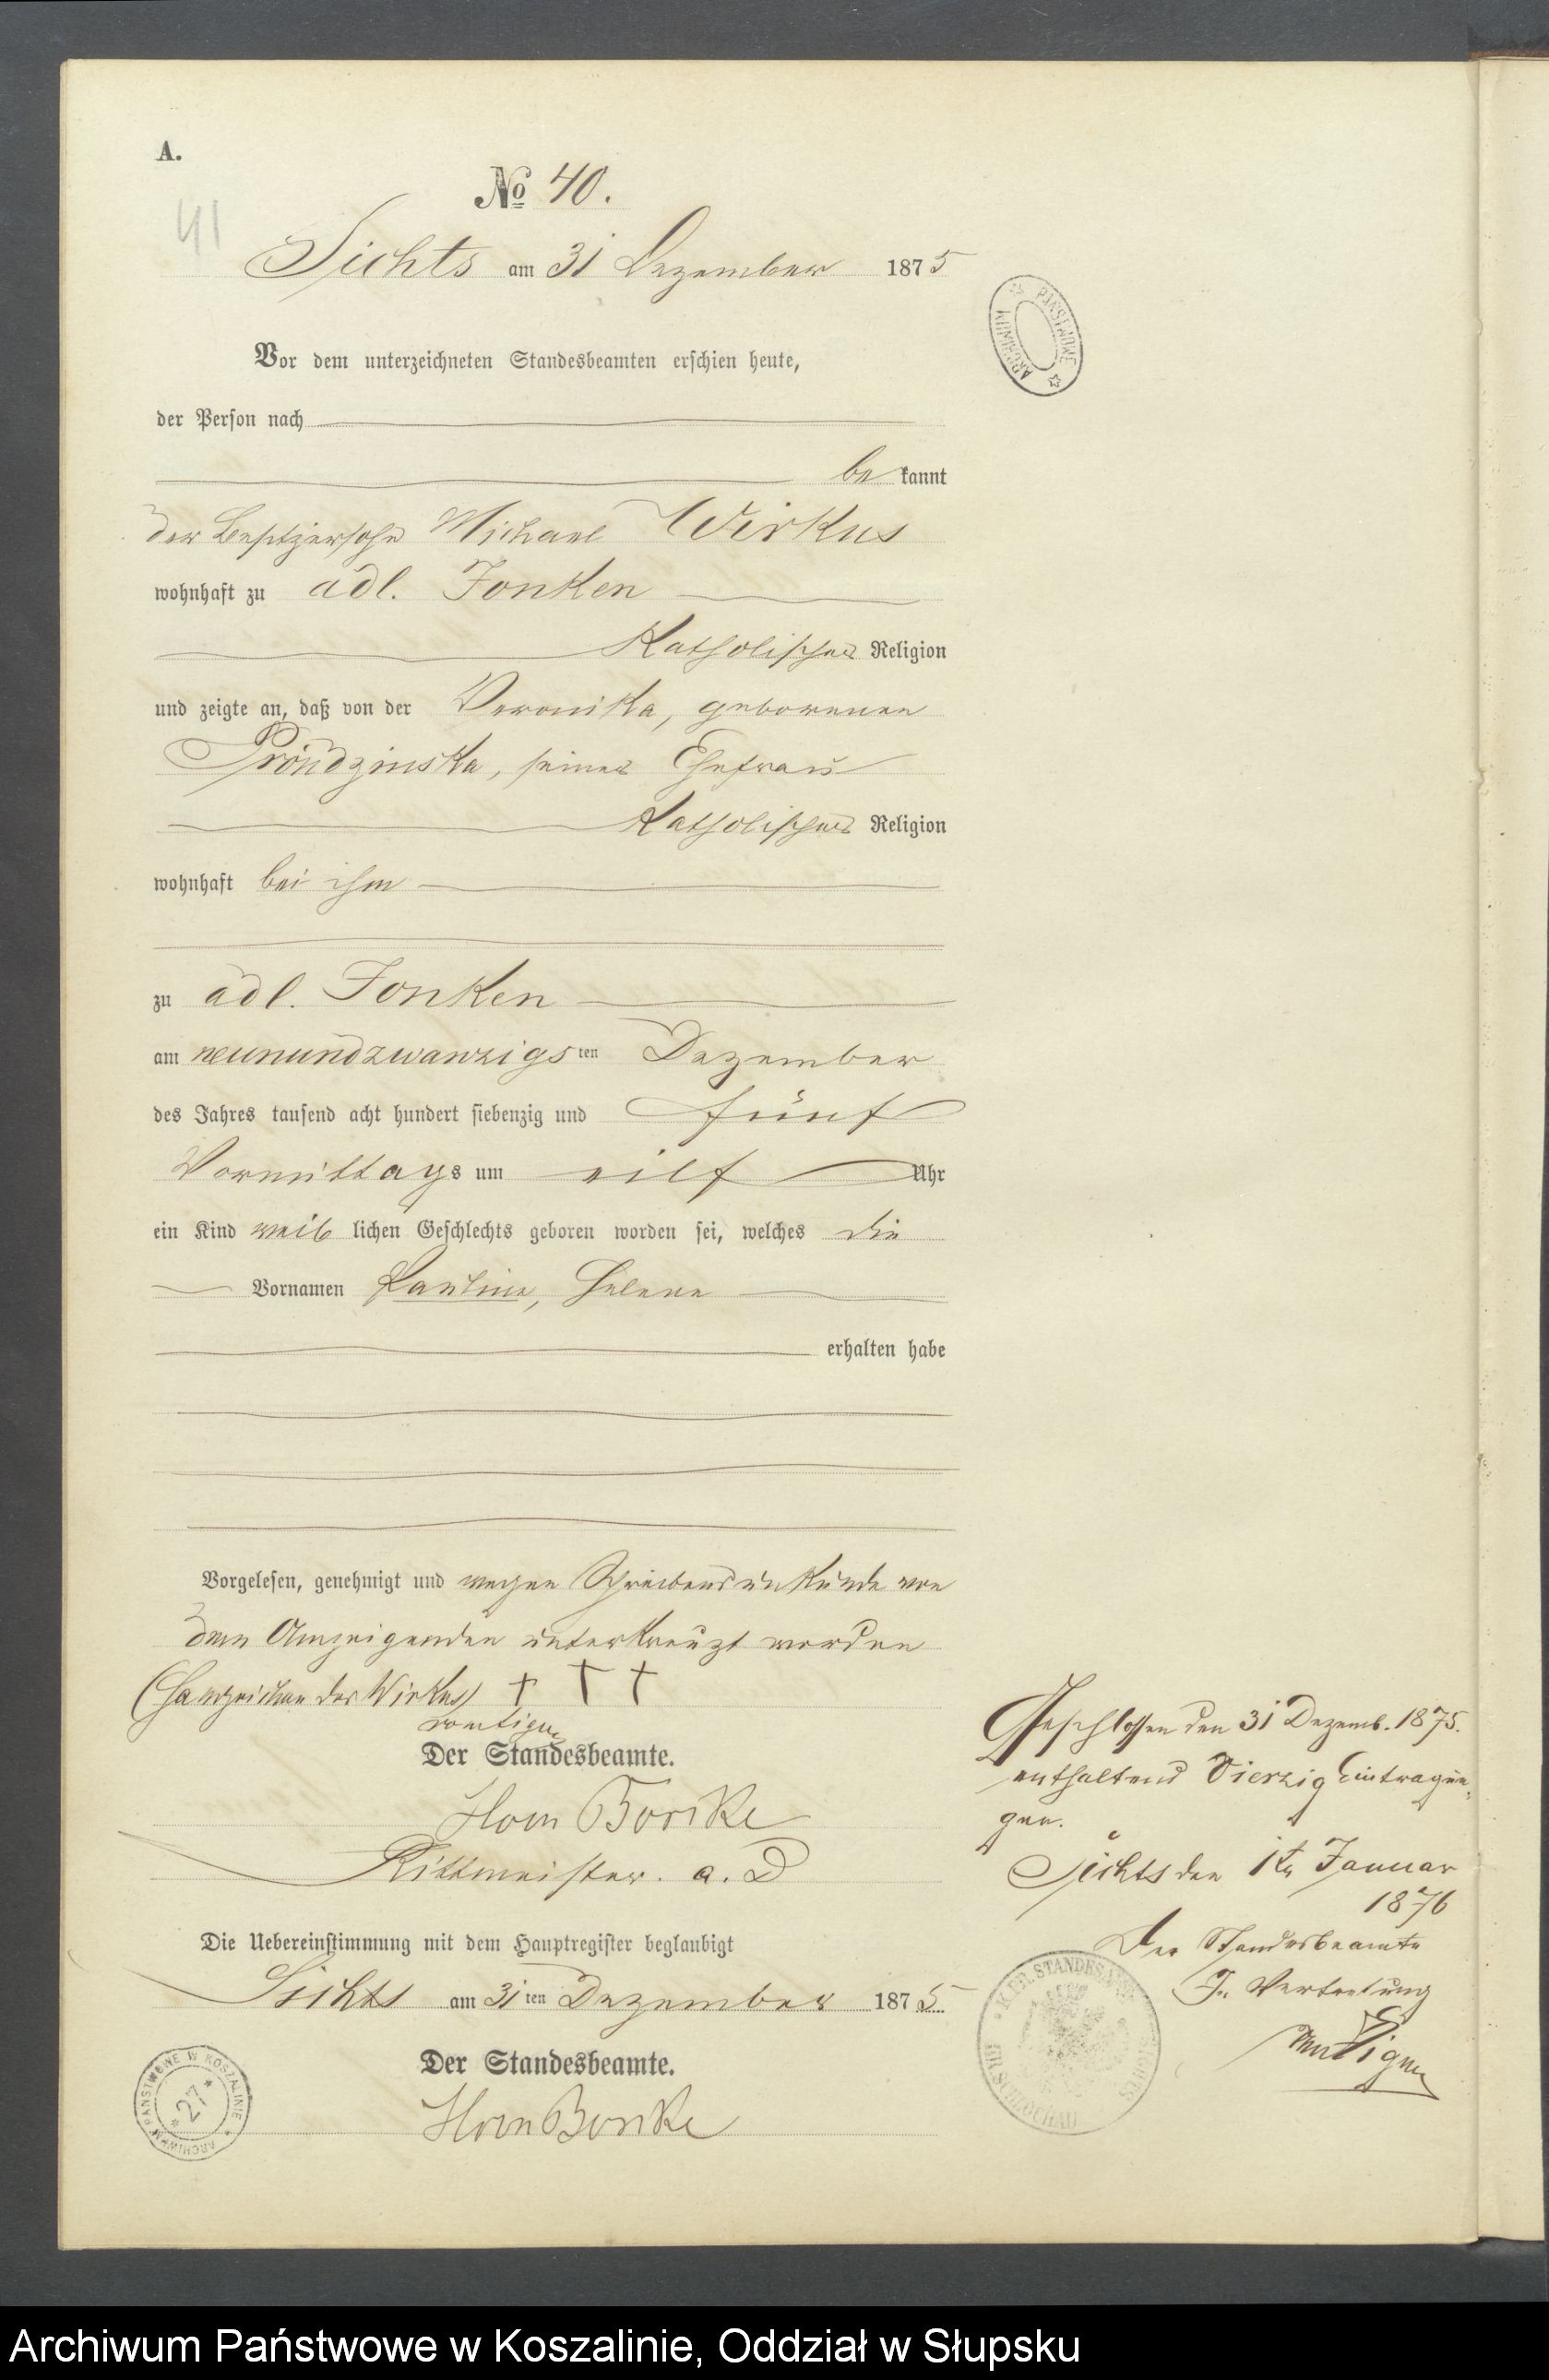 A.
№ 40.
41
Sichts am 31 Dezember 1875
Vor dem unterzeichneten Standesbeamten erschien heute,
der Person nach
bekannt
der Besitzersohn Michael Wirkus
wohnhaft zu adl. Jonken
Katholischer Religion
und zeigte an, daß von der Veronika, geborenen
Prondzinska, seiner Ehefrau
Katholischer Religion
wohnhaft bei ihm
zu adl. Jonken
am neunundzwanzigsten Dezember
des Jahres tausend acht hundert siebenzig und fünf
Vormittags um eilf Uhr
ein Kind weiblichen Geschlechts geboren worden sei, welches die
Vornamen Pauline, Helene
erhalten habe
Vorgelesen, genehmigt und wegen Schreibensunkunde von
dem Anzeigenden unterkreuzt worden
(Handzeichen des Wirkus) † † †
Der Standesbeamte.
Rittmeister. a. D
Die Uebereinstimmung mit dem Hauptregister beglaubigt
Sichts am 31ten Dezember 1875.
Der Standesbeamte.
Geschlossen den 31 Dezemb. 1875.
enthaltend Vierzig Eintragun-
gen.
Sichts den 1ten Januar
1876
Der Standesbeamte
In Vertretung
ARCHIWUM PAŃSTWOWE
ARCHIWUM PAŃSTWOWE W KOSZALINIE
27
Archiwum Państwowe w Koszalinie, Oddział w Słupsku